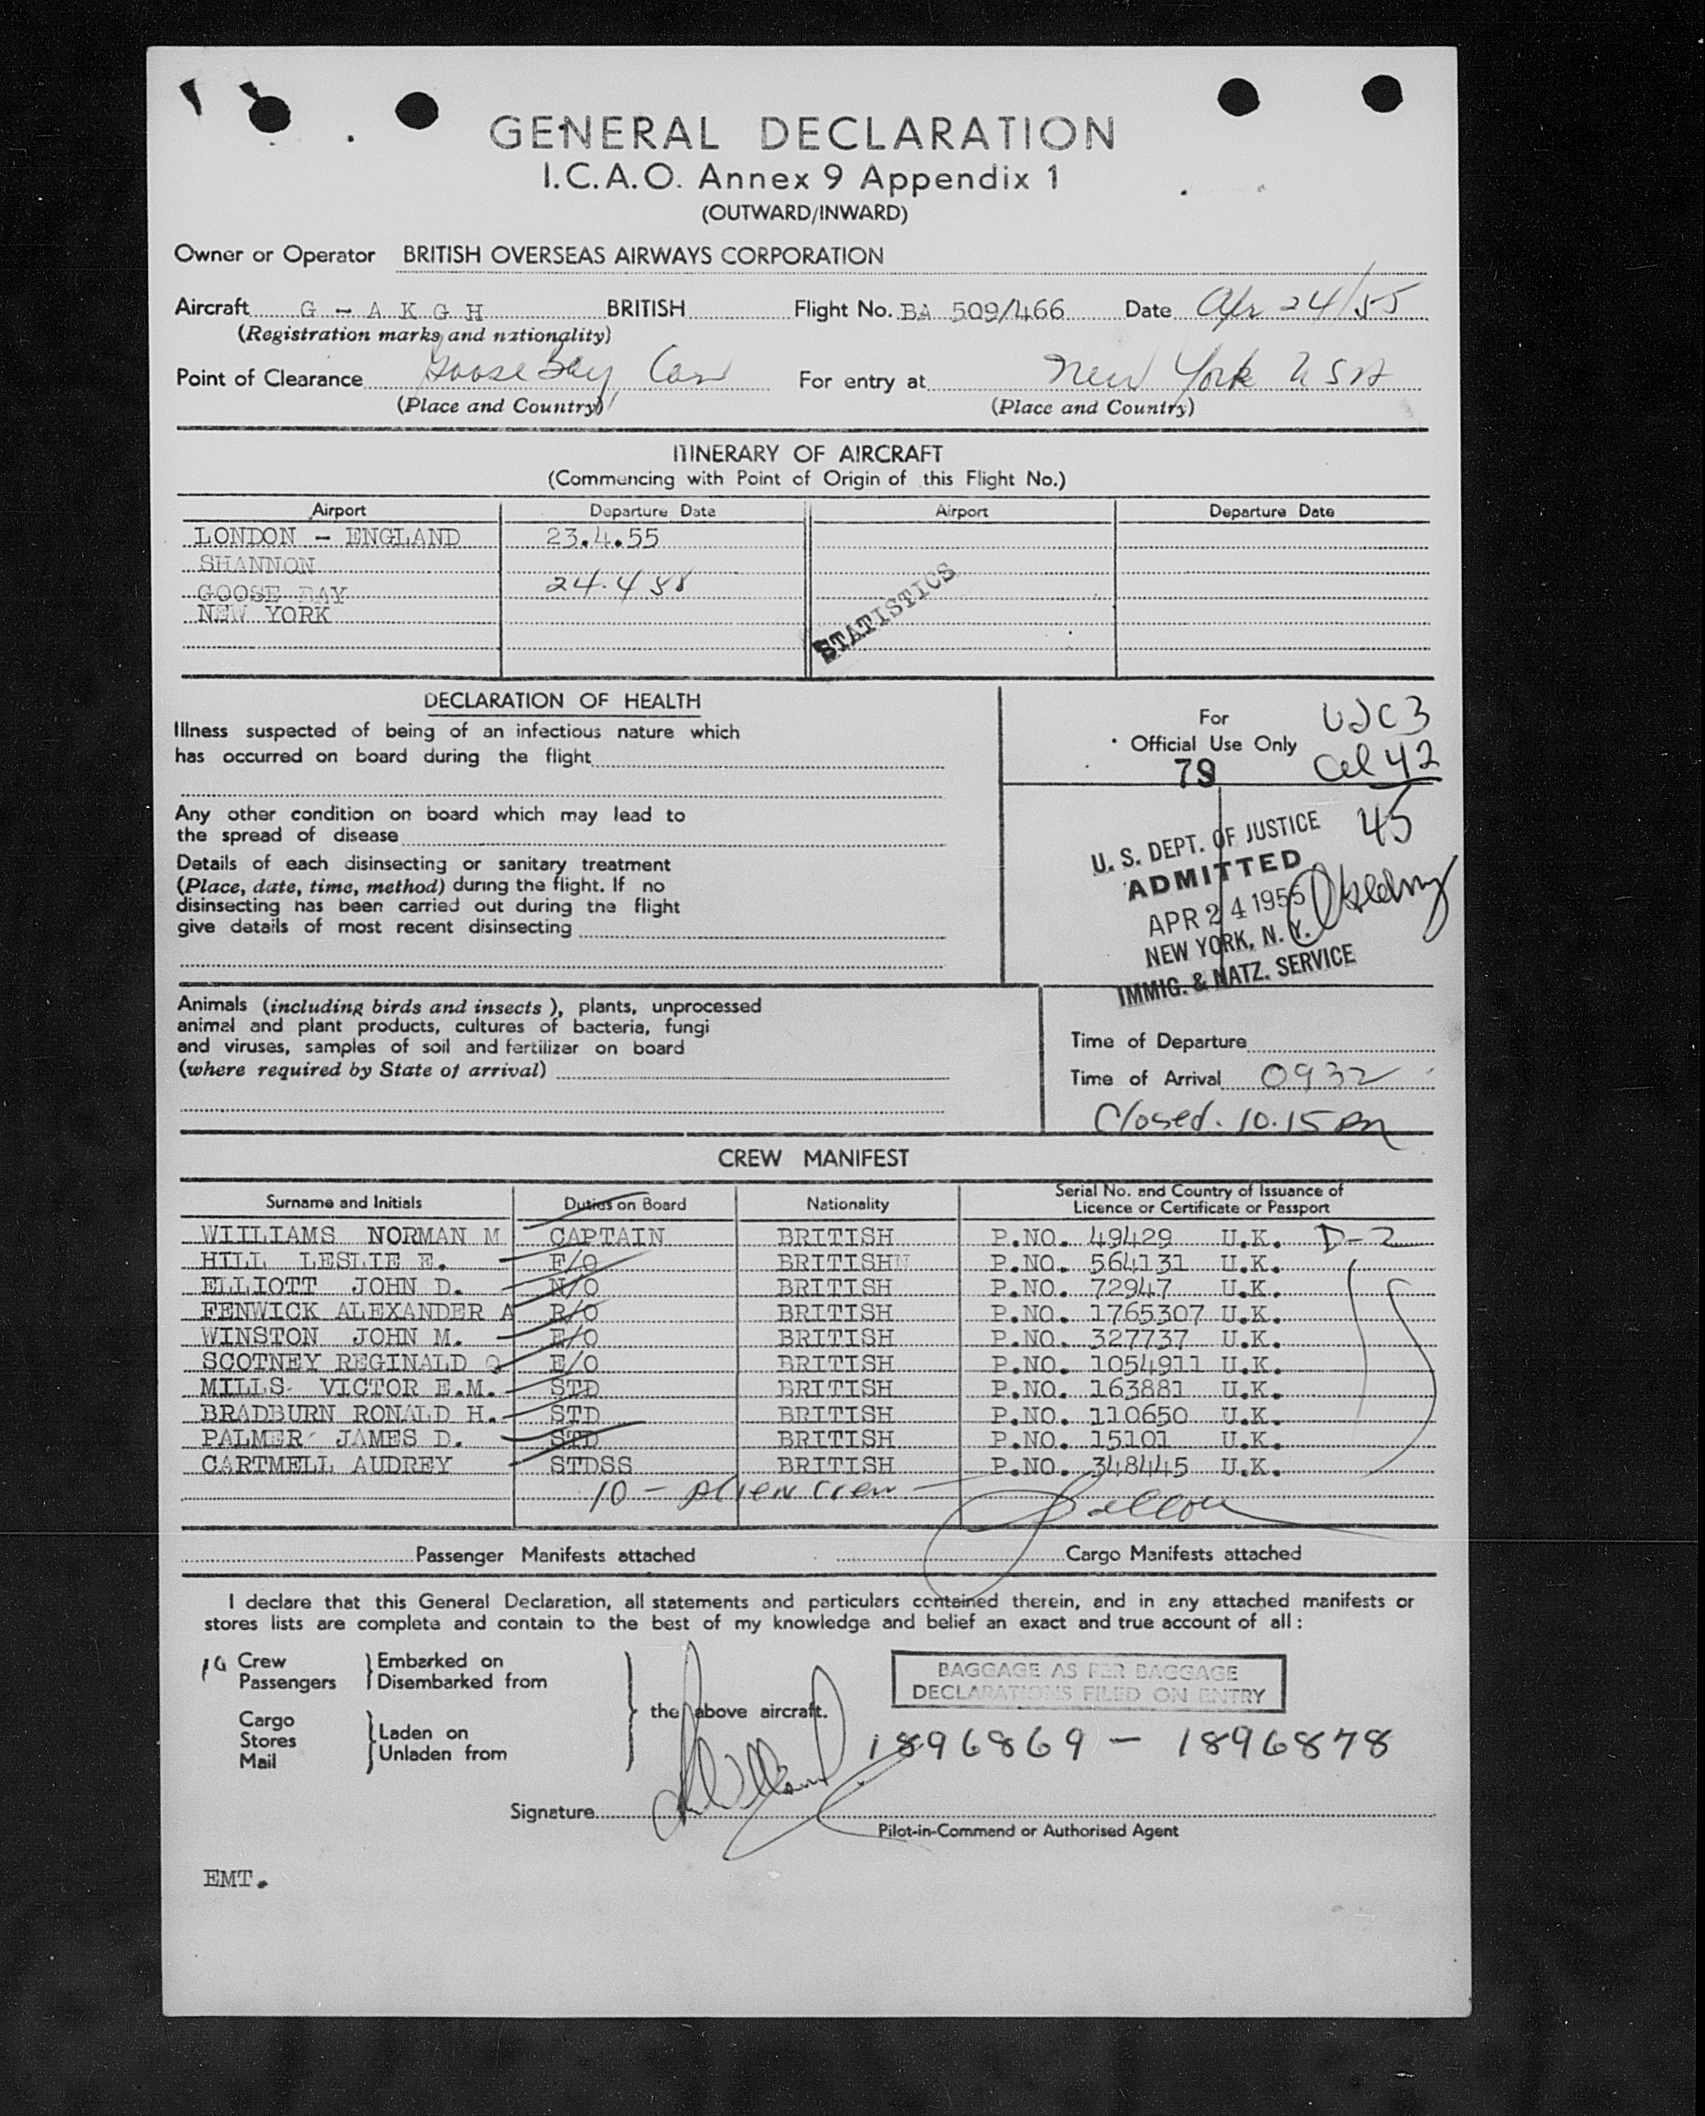 GENERAL DECLARATION
I.C.A.O. Annex 9 Appendix 1
(OUTWARD/INWARD)
Owner or Operator BRITISH OVERSEAS AIRWAYS CORPORATION
Aircraft G - A K G H BRITISH Flight No. BA 509/466 Date Apr 24/55
(Registration marks and nationality)
Point of Clearance Goose Bay Can For entry at New York USA
(Place and Country) (Place and Country)
ITINERARY OF AIRCRAFT
(Commencing with Point of Origin of this Flight No.)
Airport Departure Date Airport Departure Date
LONDON - ENGLAND 23.4.55
SHANNON
GOOSE BAY 24.4 55
NEW YORK
STATISTICS
DECLARATION OF HEALTH
Illness suspected of being of an infectious nature which
has occurred on board during the flight
Any other condition on board which may lead to
the spread of disease
Details of each disinsecting or sanitary treatment
(Place, date, time, method) during the flight. If no
disinsecting has been carried out during the flight
give details of most recent disinsecting
For
Official Use Only
79
42
45
U. S. DEPT. OF JUSTICE
ADMITTED
APR 24 1955
NEW YORK, N. Y.
IMMIG. & NATZ. SERVICE
Animals (including birds and insects), plants, unprocessed
animal and plant products, cultures of bacteria, fungi
and viruses, samples of soil and fertilizer on board
(where required by State of arrival)
Time of Departure
Time of Arrival 0932
Closed. 10.15
CREW MANIFEST
Surname and Initials Duties on Board Nationality Serial No. and Country of Issuance of
Licence or Certificate or Passport
WILLIAMS NORMAN M CAPTAIN BRITISH P.NO. 49429 U.K. D-2
HILL LESLIE E. F/O BRITISHN P.NO. 564131 U.K.
ELLIOTT JOHN D. N/O BRITISH P.NO. 72947 U.K.
FENWICK ALEXANDER A R/O BRITISH P.NO. 1765307 U.K.
WINSTON JOHN M. E/O BRITISH P.NO. 327737 U.K.
SCOTNEY REGINALD Q E/O BRITISH P.NO. 1054911 U.K.
MILLS VICTOR E.M. STD BRITISH P.NO. 163881 U.K.
BRADBURN RONALD H. STD BRITISH P.NO. 110650 U.K.
PALMER JAMES D. STD BRITISH P.NO. 15101 U.K.
CARTMELL AUDREY STDSS BRITISH P.NO. 348445 U.K.
10 - Alien Crew -
Passenger Manifests attached Cargo Manifests attached
I declare that this General Declaration, all statements and particulars contained therein, and in any attached manifests or
stores lists are complete and contain to the best of my knowledge and belief an exact and true account of all :
10 Crew Embarked on
Passengers Disembarked from
the above aircraft.
Cargo
Stores Laden on
Mail Unladen from
BAGGAGE AS PER BAGGAGE
DECLARATIONS FILED ON ENTRY
1896869 - 1896878
Signature
Pilot-in-Command or Authorised Agent
EMT.